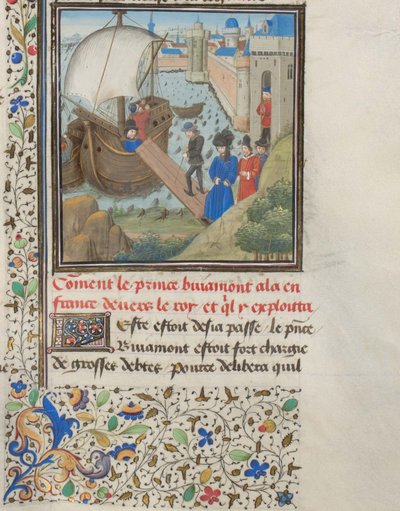 Coment le prince buiamont ala en
france deuers le roy et ql y exploitta
Ceste estoit desia passe le pnce
Buiamont estoit fort chargie
de grosses debtes Pource delibera quil